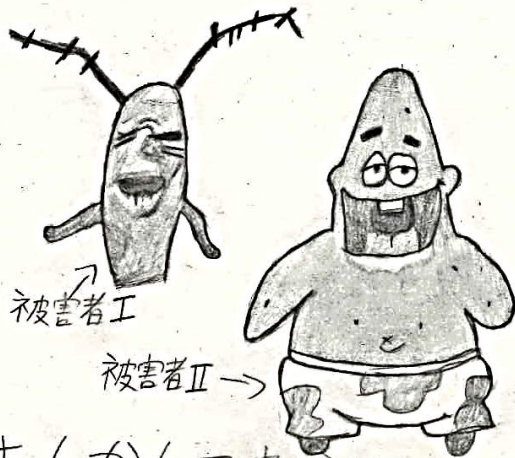 被害者Ⅰ
被害者Ⅱ